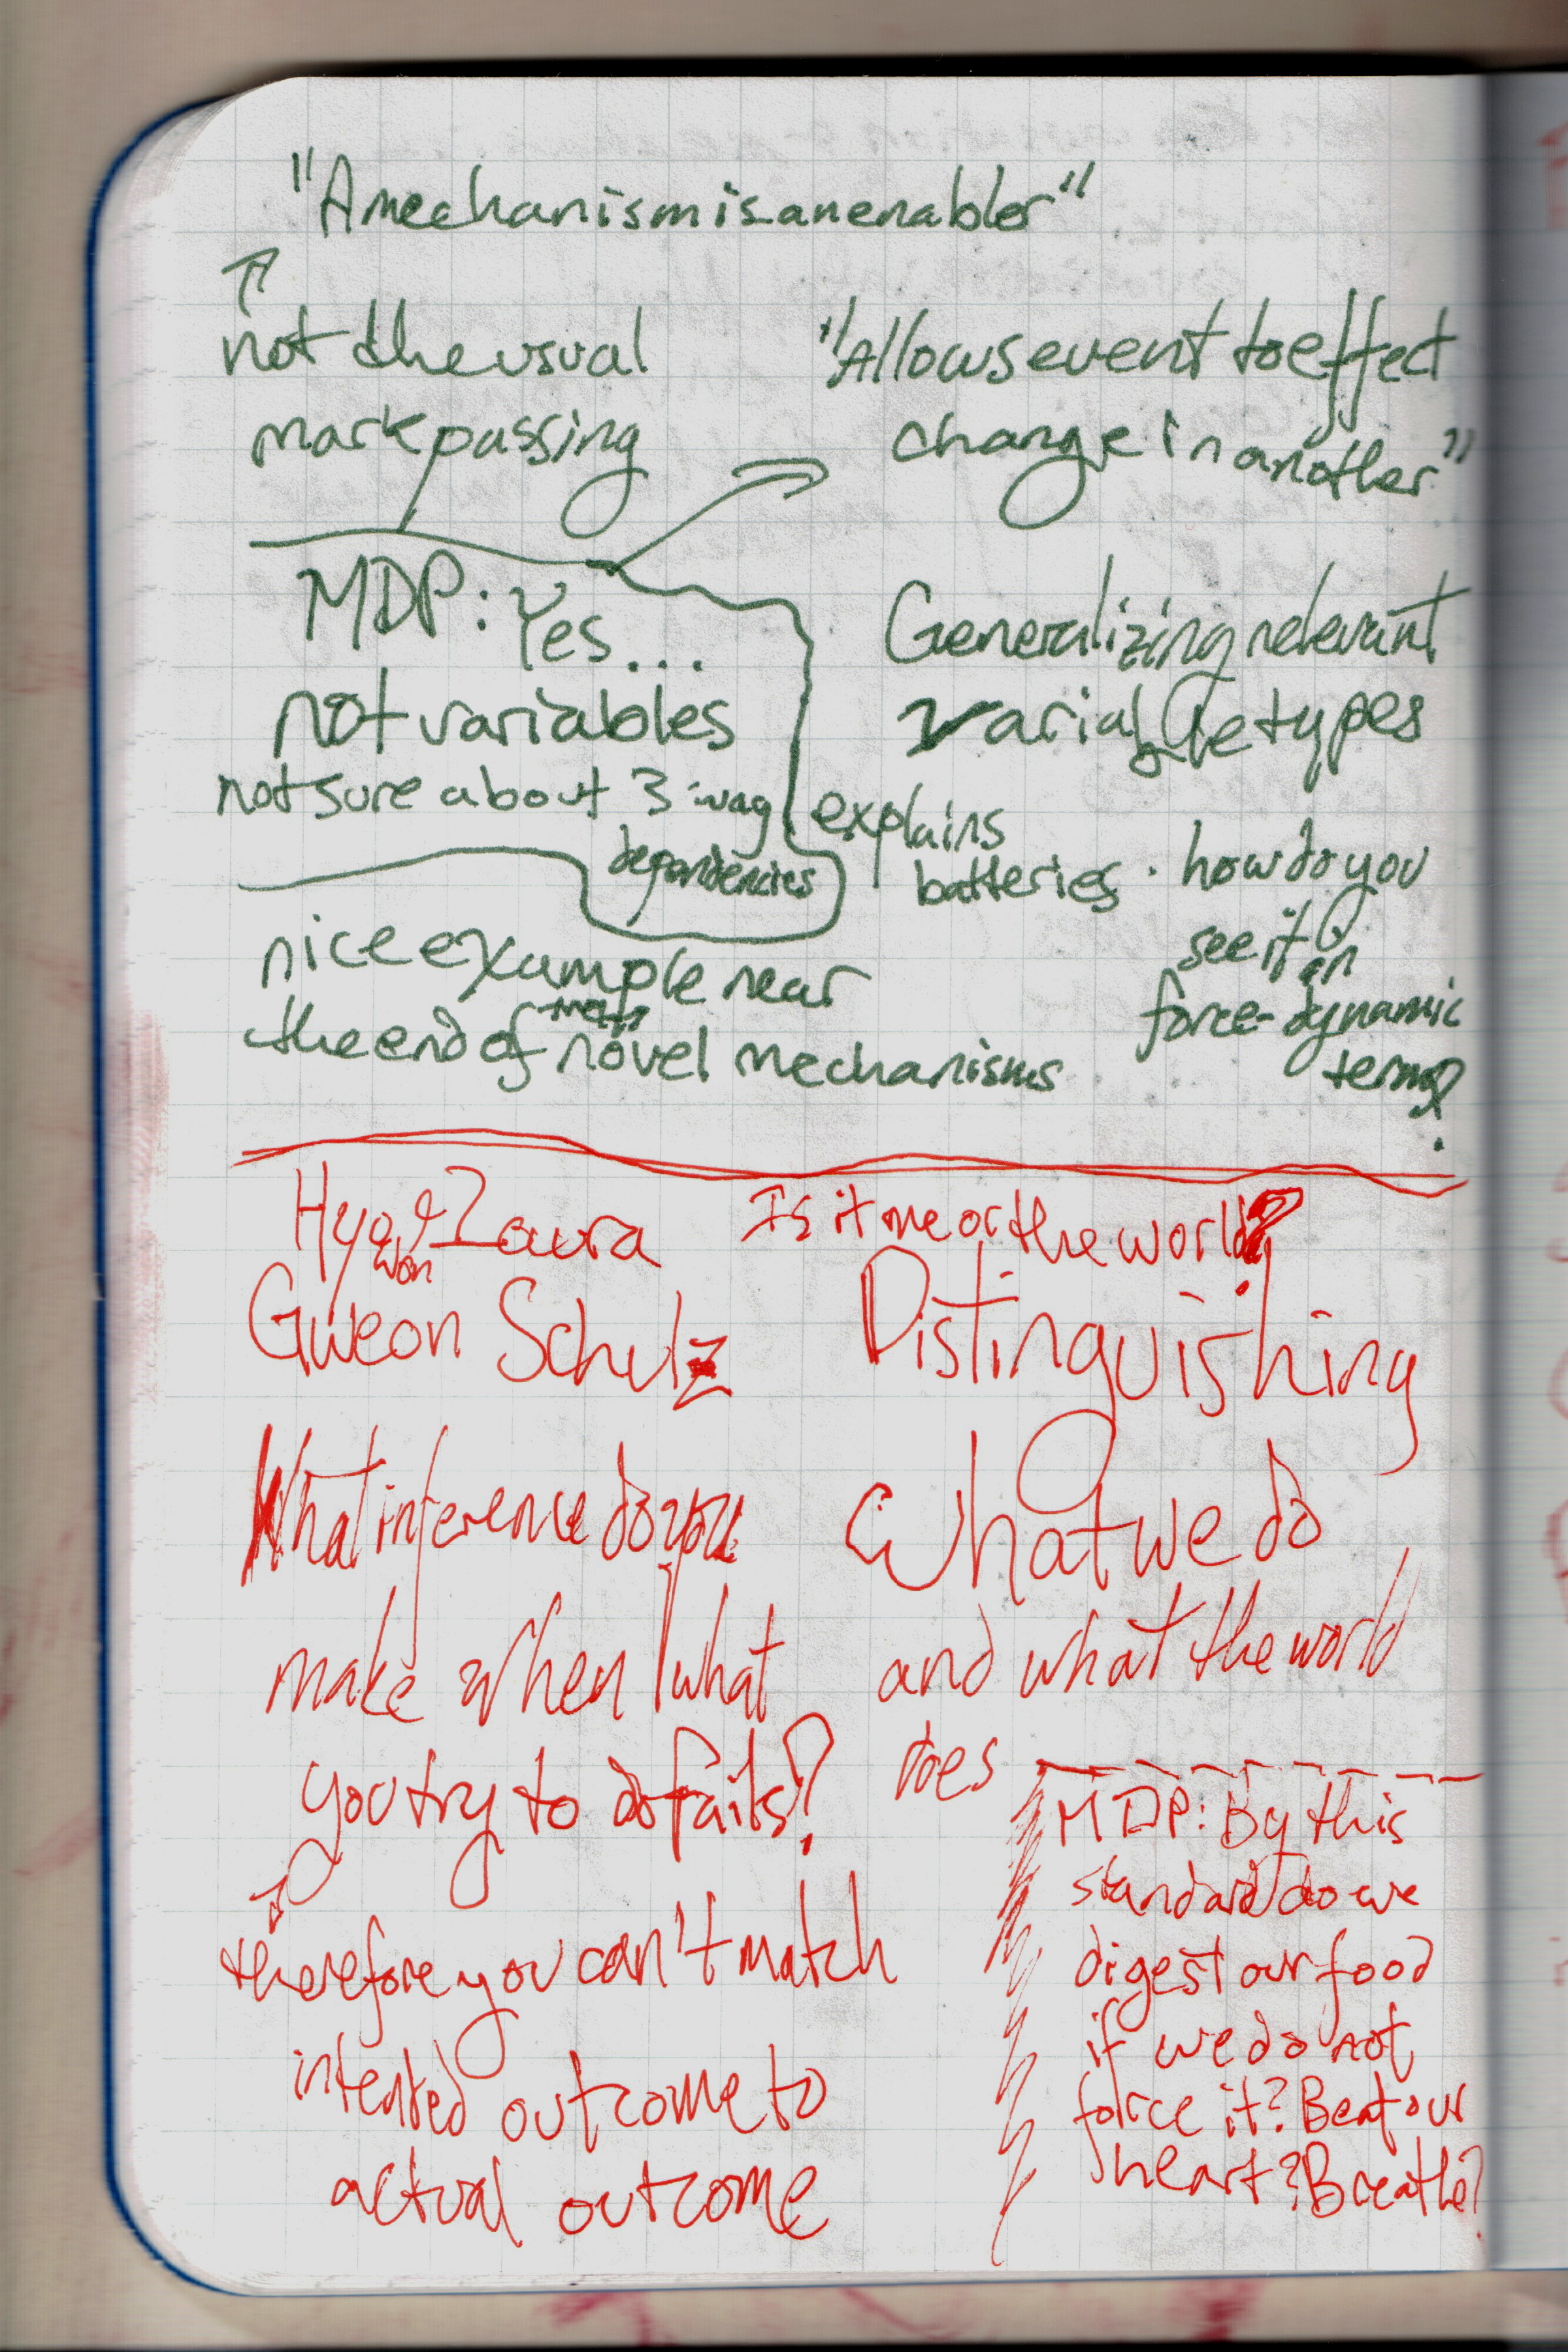 "A mechanism is an enabler"
not the usual
mark passing
"Allows event to effect
change in another"
MDP: Yes...
not variables
not sure about 3-way
dependencies
Generalizing relevant
variable types
explains
batteries · how do you
see it in
force-dynamic
terms?
nice example near
the end of
novel mechanisms
Hyo & Laura
won
Gweon Schulz
Is it me or the world?
Distinguishing
what we do
and what the world
does
What inference do you
make when what
you try to do fails?
therefore you can't match
intented outcome to
actual outcome
MDP: By this
standard do we
digest our food
if we do not
force it? Beat our
heart? Breathe?